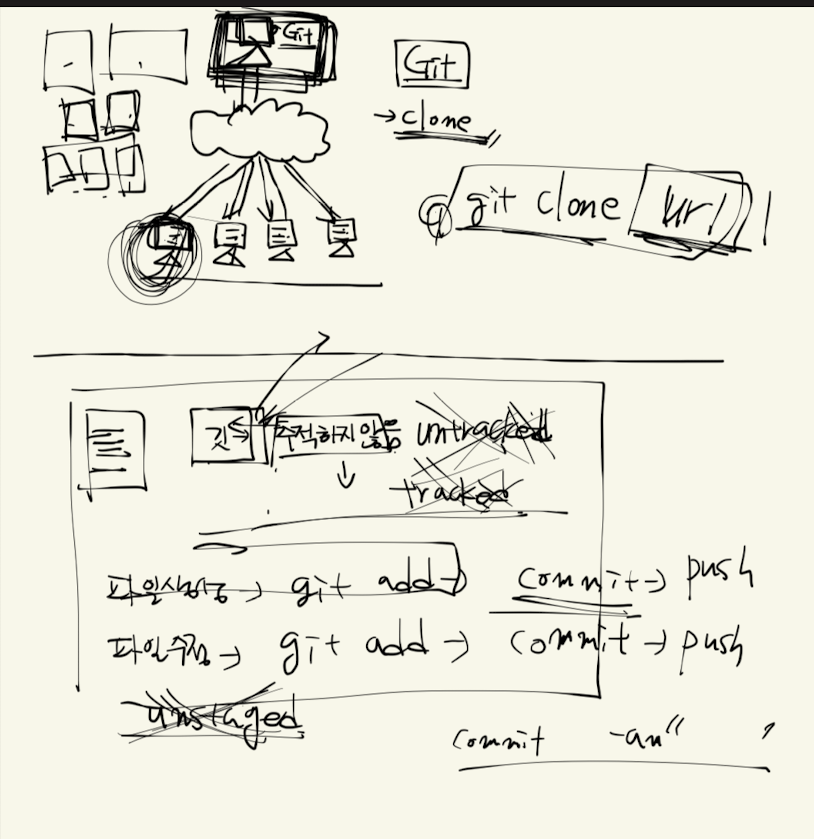 Git
Git
→ clone
① git clone url
깃 추적하지 않음 untracked
↓
tracked
파일생성 → git add → commit → push
파일수정 → git add → commit → push
unstaged
commit -am " "